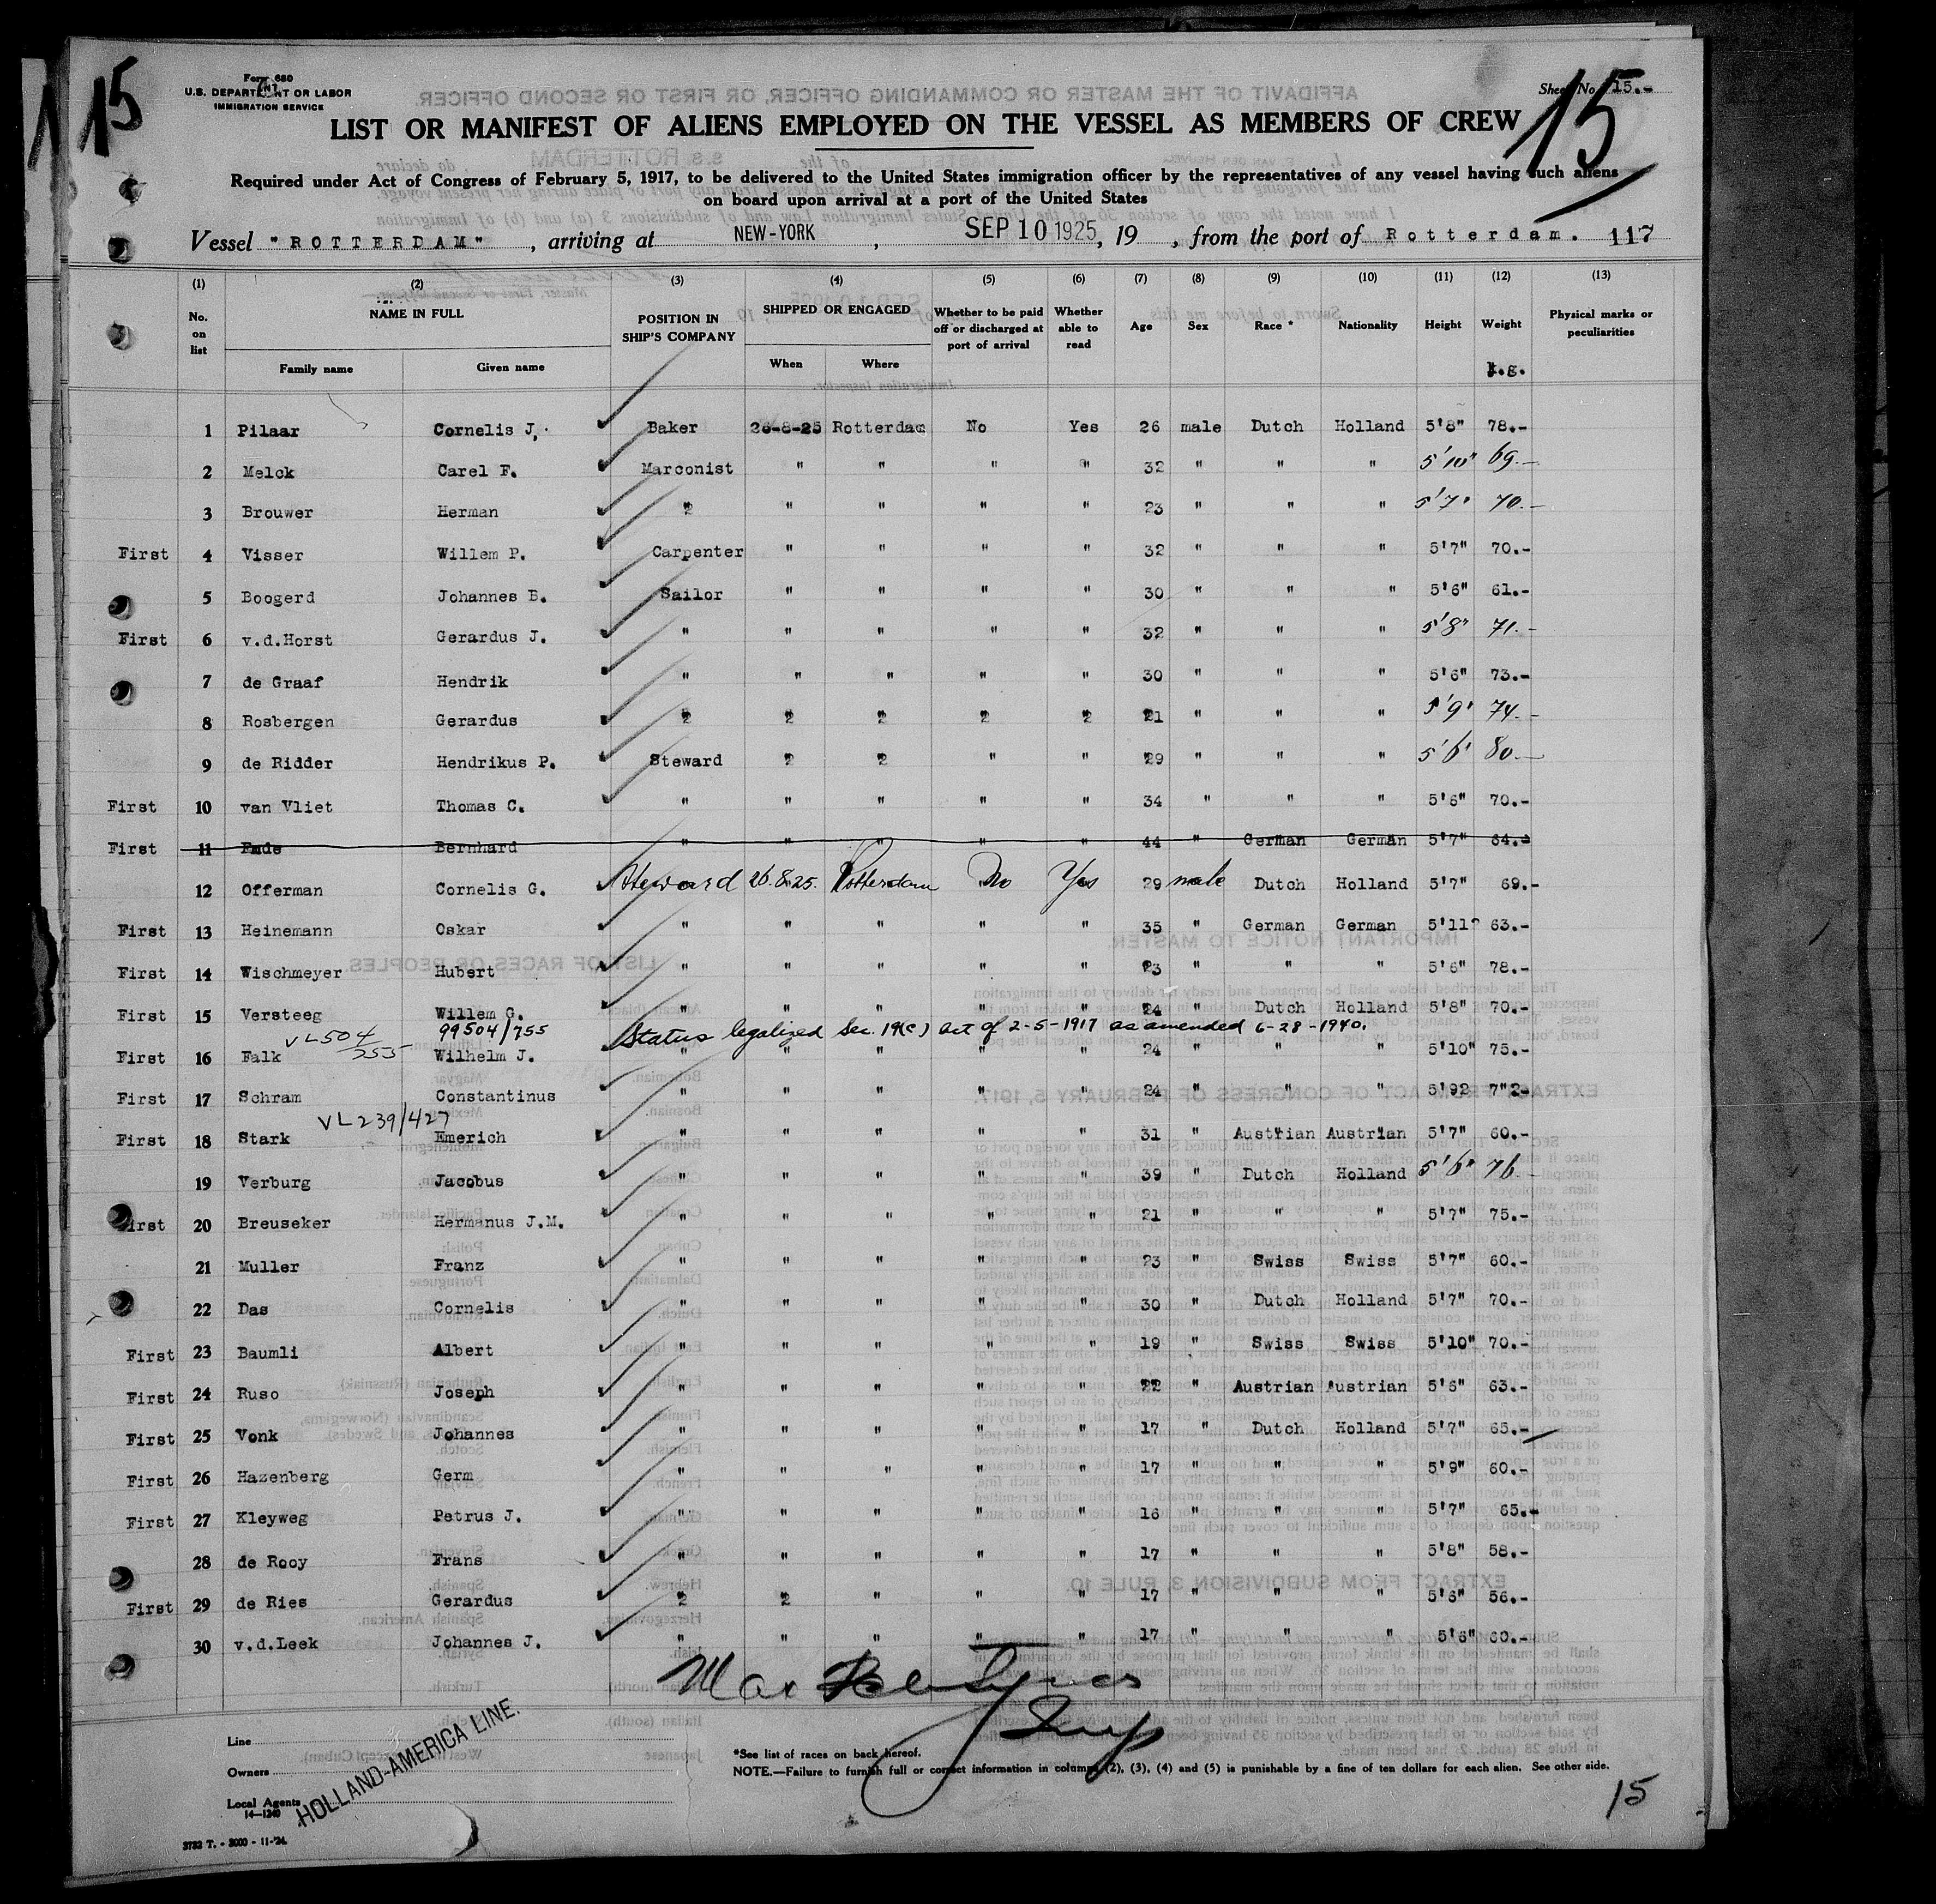 15
Form 680
U.S. DEPARTMENT OR LABOR
IMMIGRATION SERVICE
Sheet No. 15.-
15
LIST OR MANIFEST OF ALIENS EMPLOYED ON THE VESSEL AS MEMBERS OF CREW
Required under Act of Congress of February 5, 1917, to be delivered to the United States immigration officer by the representatives of any vessel having such aliens
on board upon arrival at a port of the United States
Vessel "ROTTERDAM", arriving at NEW-YORK, SEP 10 1925, 19 , from the port of Rotterdam. 117
(1) (2) (3) (4) (5) (6) (7) (8) (9) (10) (11) (12) (13)
No. on list NAME IN FULL POSITION IN SHIP'S COMPANY SHIPPED OR ENGAGED Whether to be paid off or discharged at port of arrival Whether able to read Age Sex Race * Nationality Height Weight Physical marks or peculiarities
Family name Given name When Where k.g.
1 Pilaar Cornelis J. Baker 26-8-25 Rotterdam No Yes 26 male Dutch Holland 5'8" 78.-
2 Melck Carel F. Marconist " " " " 32 " " " 5'10" 69.-
3 Brouwer Herman " " " " " 23 " " " 5'7" 70.-
First 4 Visser Willem P. Carpenter " " " " 32 " " " 5'7" 70.-
5 Boogerd Johannes B. Sailor " " " " 30 " " " 5'6" 61.-
First 6 v.d.Horst Gerardus J. " " " " " 32 " " " 5'8" 71.-
7 de Graaf Hendrik " " " " " 30 " " " 5'6" 73.-
8 Rosbergen Gerardus " " " " " 21 " " " 5'9" 74.-
9 de Ridder Hendrikus P. Steward 2 2 " " 29 " " " 5'6' 80.-
First 10 van Vliet Thomas C. " " " " " 34 " " " 5'6" 70.-
First 11 Bernhard " " " " " 44 " German German 5'7" 64.-
12 Offerman Cornelis G. Steward 26.8.25. Rotterdam No Yes 29 male Dutch Holland 5'7" 69.-
First 13 Heinemann Oskar " " " " " 35 " German German 5'11" 63.-
First 14 Wischmeyer Hubert " " " " " 23 " " " 5'6" 78.-
First 15 Versteeg Willem G. " " " " " 24 " Dutch Holland 5'8" 70.-
VL504/255 99504/755 Status legalized Sec. 19(c) act of 2-5-1917 as amended 6-28-1940.
First 16 Falk Wilhelm J. " " " " " 24 " " " 5'10" 75.-
First 17 Schram Constantinus " " " " " 24 " " " 5'92 7"2-
VL239/427
First 18 Stark Emerich " " " " " 31 " Austrian Austrian 5'7" 60.-
19 Verburg Jacobus " " " " " 39 " Dutch Holland 5'6" 76.-
First 20 Breuseker Hermanus J.M. " " " " " 21 " " " 5'7" 75.-
21 Muller Franz " " " " " 23 " Swiss Swiss 5'7" 60.-
22 Das Cornelis " " " " " 30 " Dutch Holland 5'7" 70.-
First 23 Baumli Albert " " " " " 19 " Swiss Swiss 5'10" 70.-
First 24 Ruso Joseph " " " " " 22 " Austrian Austrian 5'6" 63.-
First 25 Vonk Johannes " " " " " 17 " Dutch Holland 5'7" 65.-
First 26 Hazenberg Germ " " " " " 17 " " " 5'9" 60.-
First 27 Kleyweg Petrus J. " " " " " 16 " " " 5'7" 65.-
28 de Rooy Frans " " " " " 17 " " " 5'8" 58.-
First 29 de Ries Gerardus 2 2 " " " 17 " " " 5'6" 56.-
30 v.d.Leek Johannes J. " " " " " 17 " " " 5'6" 60.-
Max
Line
Owners
Local Agents
HOLLAND-AMERICA LINE.
14—1240
3732 T. - 3000 - 11-'24.
*See list of races on back hereof.
NOTE.—Failure to furnish full or correct information in columns (2), (3), (4) and (5) is punishable by a fine of ten dollars for each alien. See other side.
15